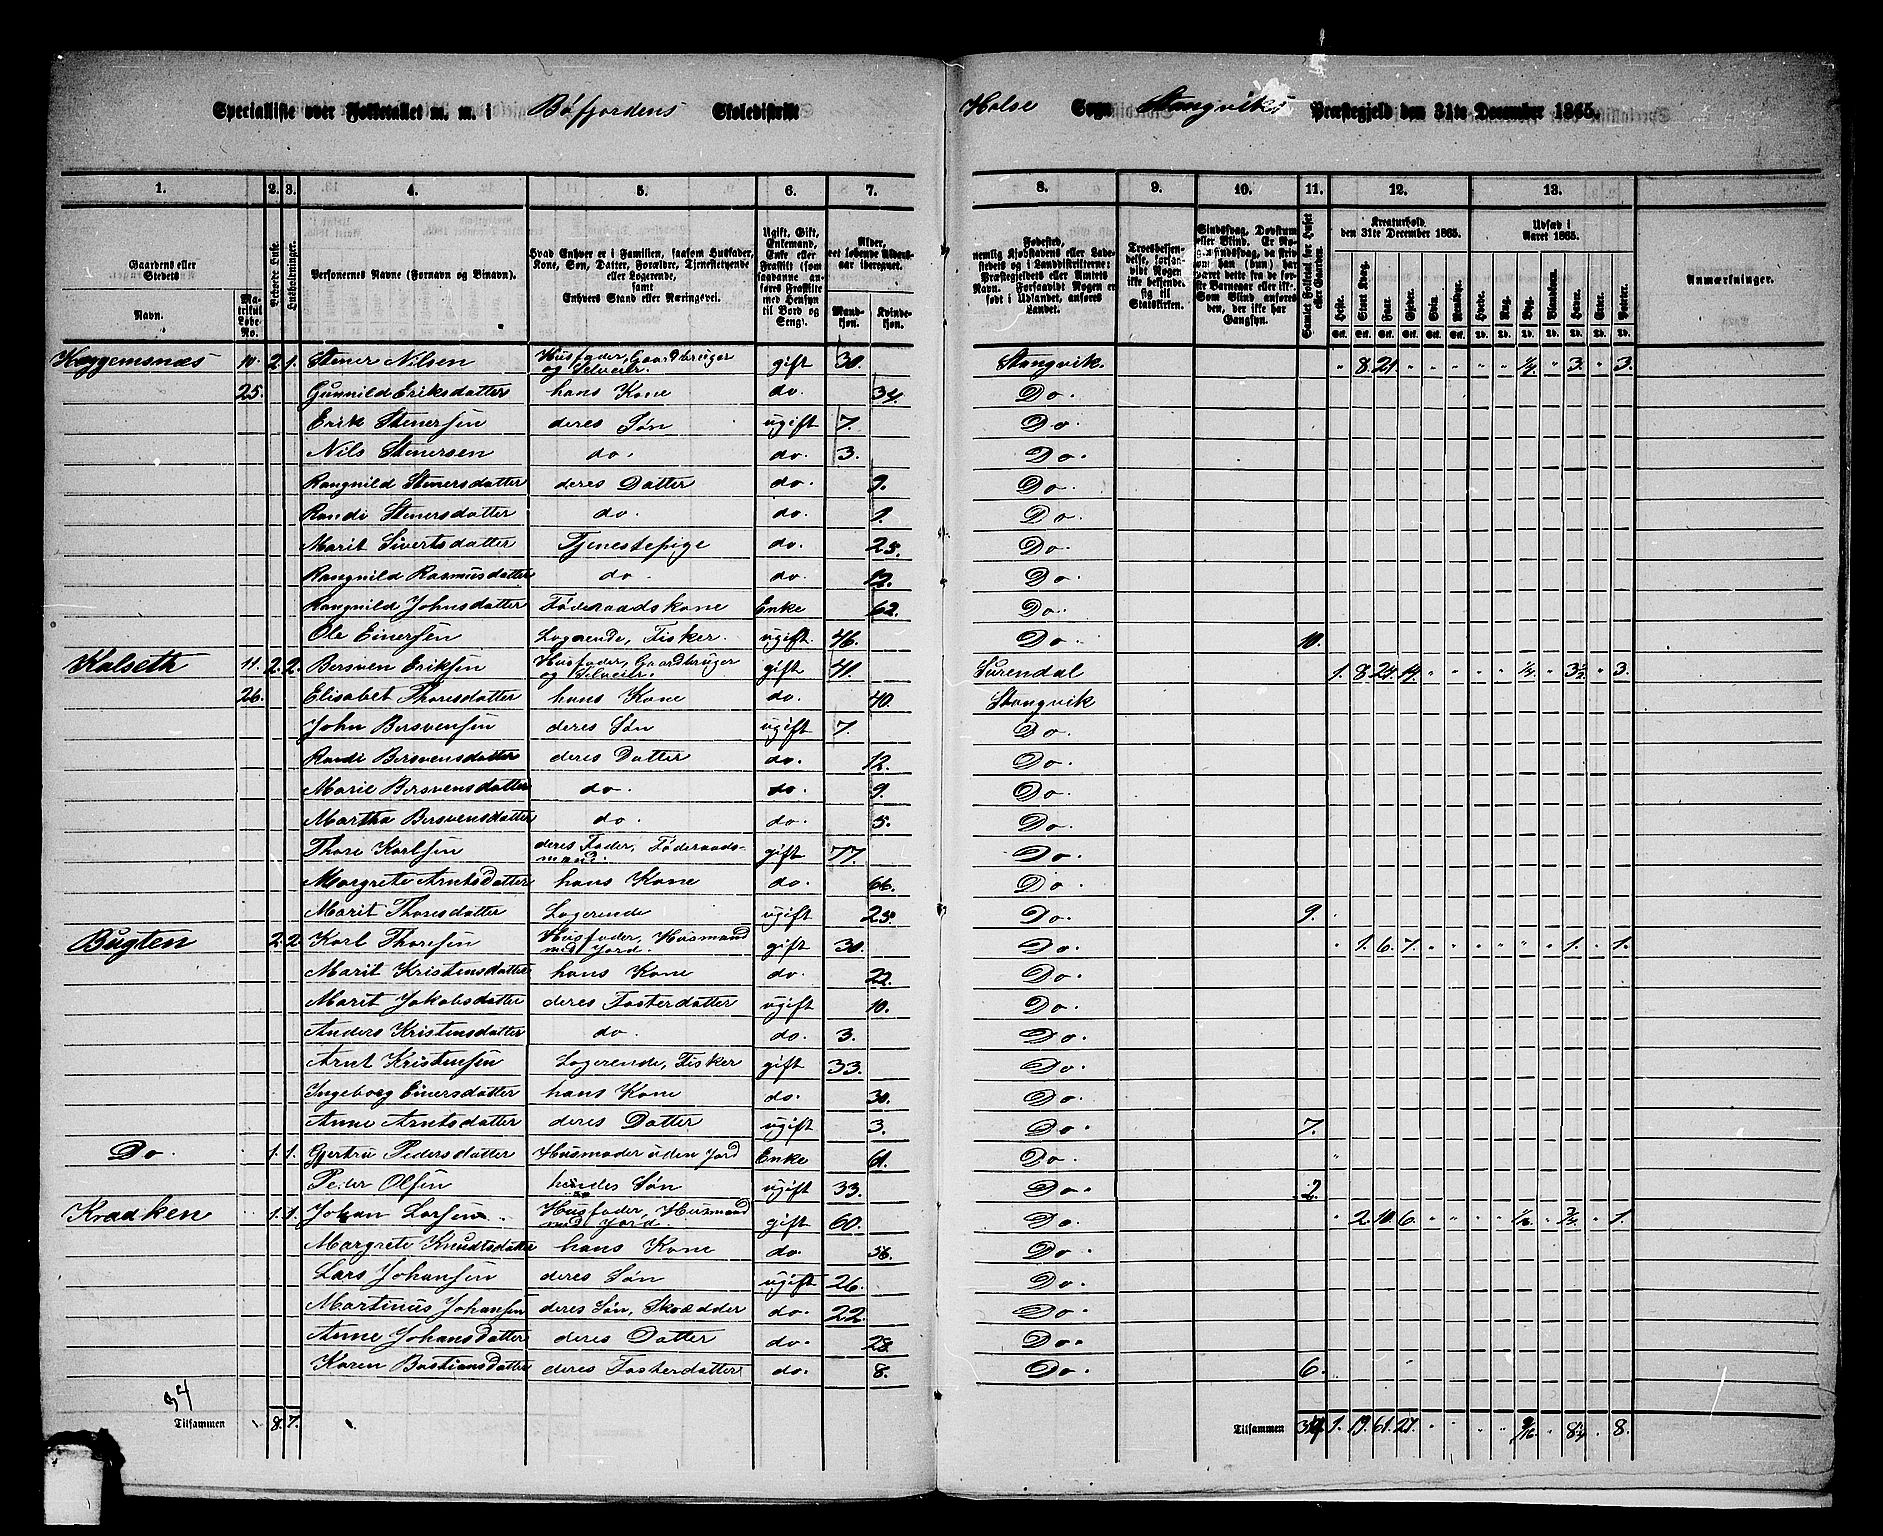 Specialliste over Folketallet m. m. i Bøfjordens Skoledistrikt Halse Sogn Stangviks Præstegjeld den 31te December 1865.
1. 2. 3. 4. 5. 6. 7. 8. 9. 10. 11. 12. 13.
Gaardens eller Stedets Navn. Matrikul Løbe-No. Beboede Huse. Husholdninger. Personernes Navne (Fornavn og Binavn). Hvad Enhver er i Familien, saasom Husfader, Kone, Søn, Datter, Forældre, Tjenestetyende eller Logerende, samt Enhvers Stand eller Næringsvei. Ugift, Gift, Enkemand, Enke eller Fraskilt (som saadanne anføres Fraskilte med Hensyn til Bord og Seng). Alder, det løbende Aldersaar iberegnet. Mandkjøn. Kvindekjøn.
Fødested, nemlig Kjøbstadens eller Ladestedets og i Landdistrikterne: Præstegjeldets eller Annexets Navn. Forsaavidt Nogen er født i Udlandet, anføres Landet. Troesbekjendelse, forsaavidt Nogen ikke bekjender sig til Statskirken. Sindssvag, Døvstum eller Blind. Samlet Folketal for Huset eller Gaarden. Kreaturhold den 31te December 1865. Udsæd i Aaret 1865. Anmærkninger.
Heste. Stort Kvæg. Faar. Gjeder. Sviin. Rensdyr. Hvede. Rug. Byg. Blandkorn. Havre. Erter. Poteter.
Kaggemsnæs 10. 2. 1. Stener Nilsen Husfader, Gaardbruger og Selveier. gift 30. Stangvik. " 8. 21 " " " " " ½ " 3. " 3.
25. Gunnild Eriksdatter hans Kone do. 34. Do.
Erik Stenersen deres Søn ugift 7. Do
Nils Stenersen do. do. 3. Do.
Rangnild Stenersdatter deres Datter do. 9. Do.
Randi Stenersdatter do. do. 1. Do.
Marit Sivertsdatter Tjenestepige do. 25. Do.
Rangnild Rasmusdatter do. do. 12. Do.
Rangnild Johnsdatter Føderaadskone Enke 62. Do.
Ole Einersen Logerende, Fisker. ugift. 46. Do. 10.
Kalseth 11. 2. 2. Bersven Eriksen Husfader, Gaardbruger og Selveier. gift 41. Surendal 1. 8. 24. 14. " " " " " 3½ " 3.
26. Elisabet Thoresdatter hans Kone do. 40. Stangvik
John Bersvensen deres Søn ugift 7. Do.
Randi Bersvensdatter deres Datter do. 12. Do.
Marie Bersvensdatter do. do. 9. Do.
Martha Bersvensdatter do. do. 5. Do.
Thore Karlsen deres Fader, Føderaadsmand. gift 77. Do.
Margrete Arntsdatter hans Kone do. 66. Do.
Marit Thoresdatter Logerende ugift 25. Do. 9.
Bugten 2. 2. Karl Thoresen Husfader, Husmand med Jord. gift 30. Do. " 1. 6. 7. " " " " " " 1. " 1.
Marit Kristensdatter hans Kone do. 22. Do.
Marit Jakobsdatter deres Fosterdatter ugift 10. Do.
Anders Kristensdatter do. do. 3. Do.
Arnt Kristensen Logerende, Fisker gift 33. Do.
Ingeborg Einersdatter hans Kone do. 30. Do.
Anne Arntsdatter deres Datter ugift 3. Do. 7.
Do. 1. 1. Gjertru Pedersdatter Husmoder uden Jord Enke 61. Do. "
Peder Olsen hendes Søn ugift 33. Do. 2.
Kraaken 1. 1. Johan Larsen Husfader, Husmand med Jord. gift 60. Do. " 2. 10. 6. " " " " 1/16 " ¾ " 1.
Margrete Knudtsdatter hans Kone do. 56. Do.
Lars Johansen deres Søn ugift 26. Do.
Martinus Johansen deres Søn, Skrædder do. 22. Do.
Anne Johansdatter deres Datter do. 28. Do.
Karen Bastiansdatter deres Fosterdatter do. 8. Do. 6.
34
Tilsammen 8. 7. Tilsammen 34 1. 19. 61. 27. " " " " 9/16 " 8¼ " 8.